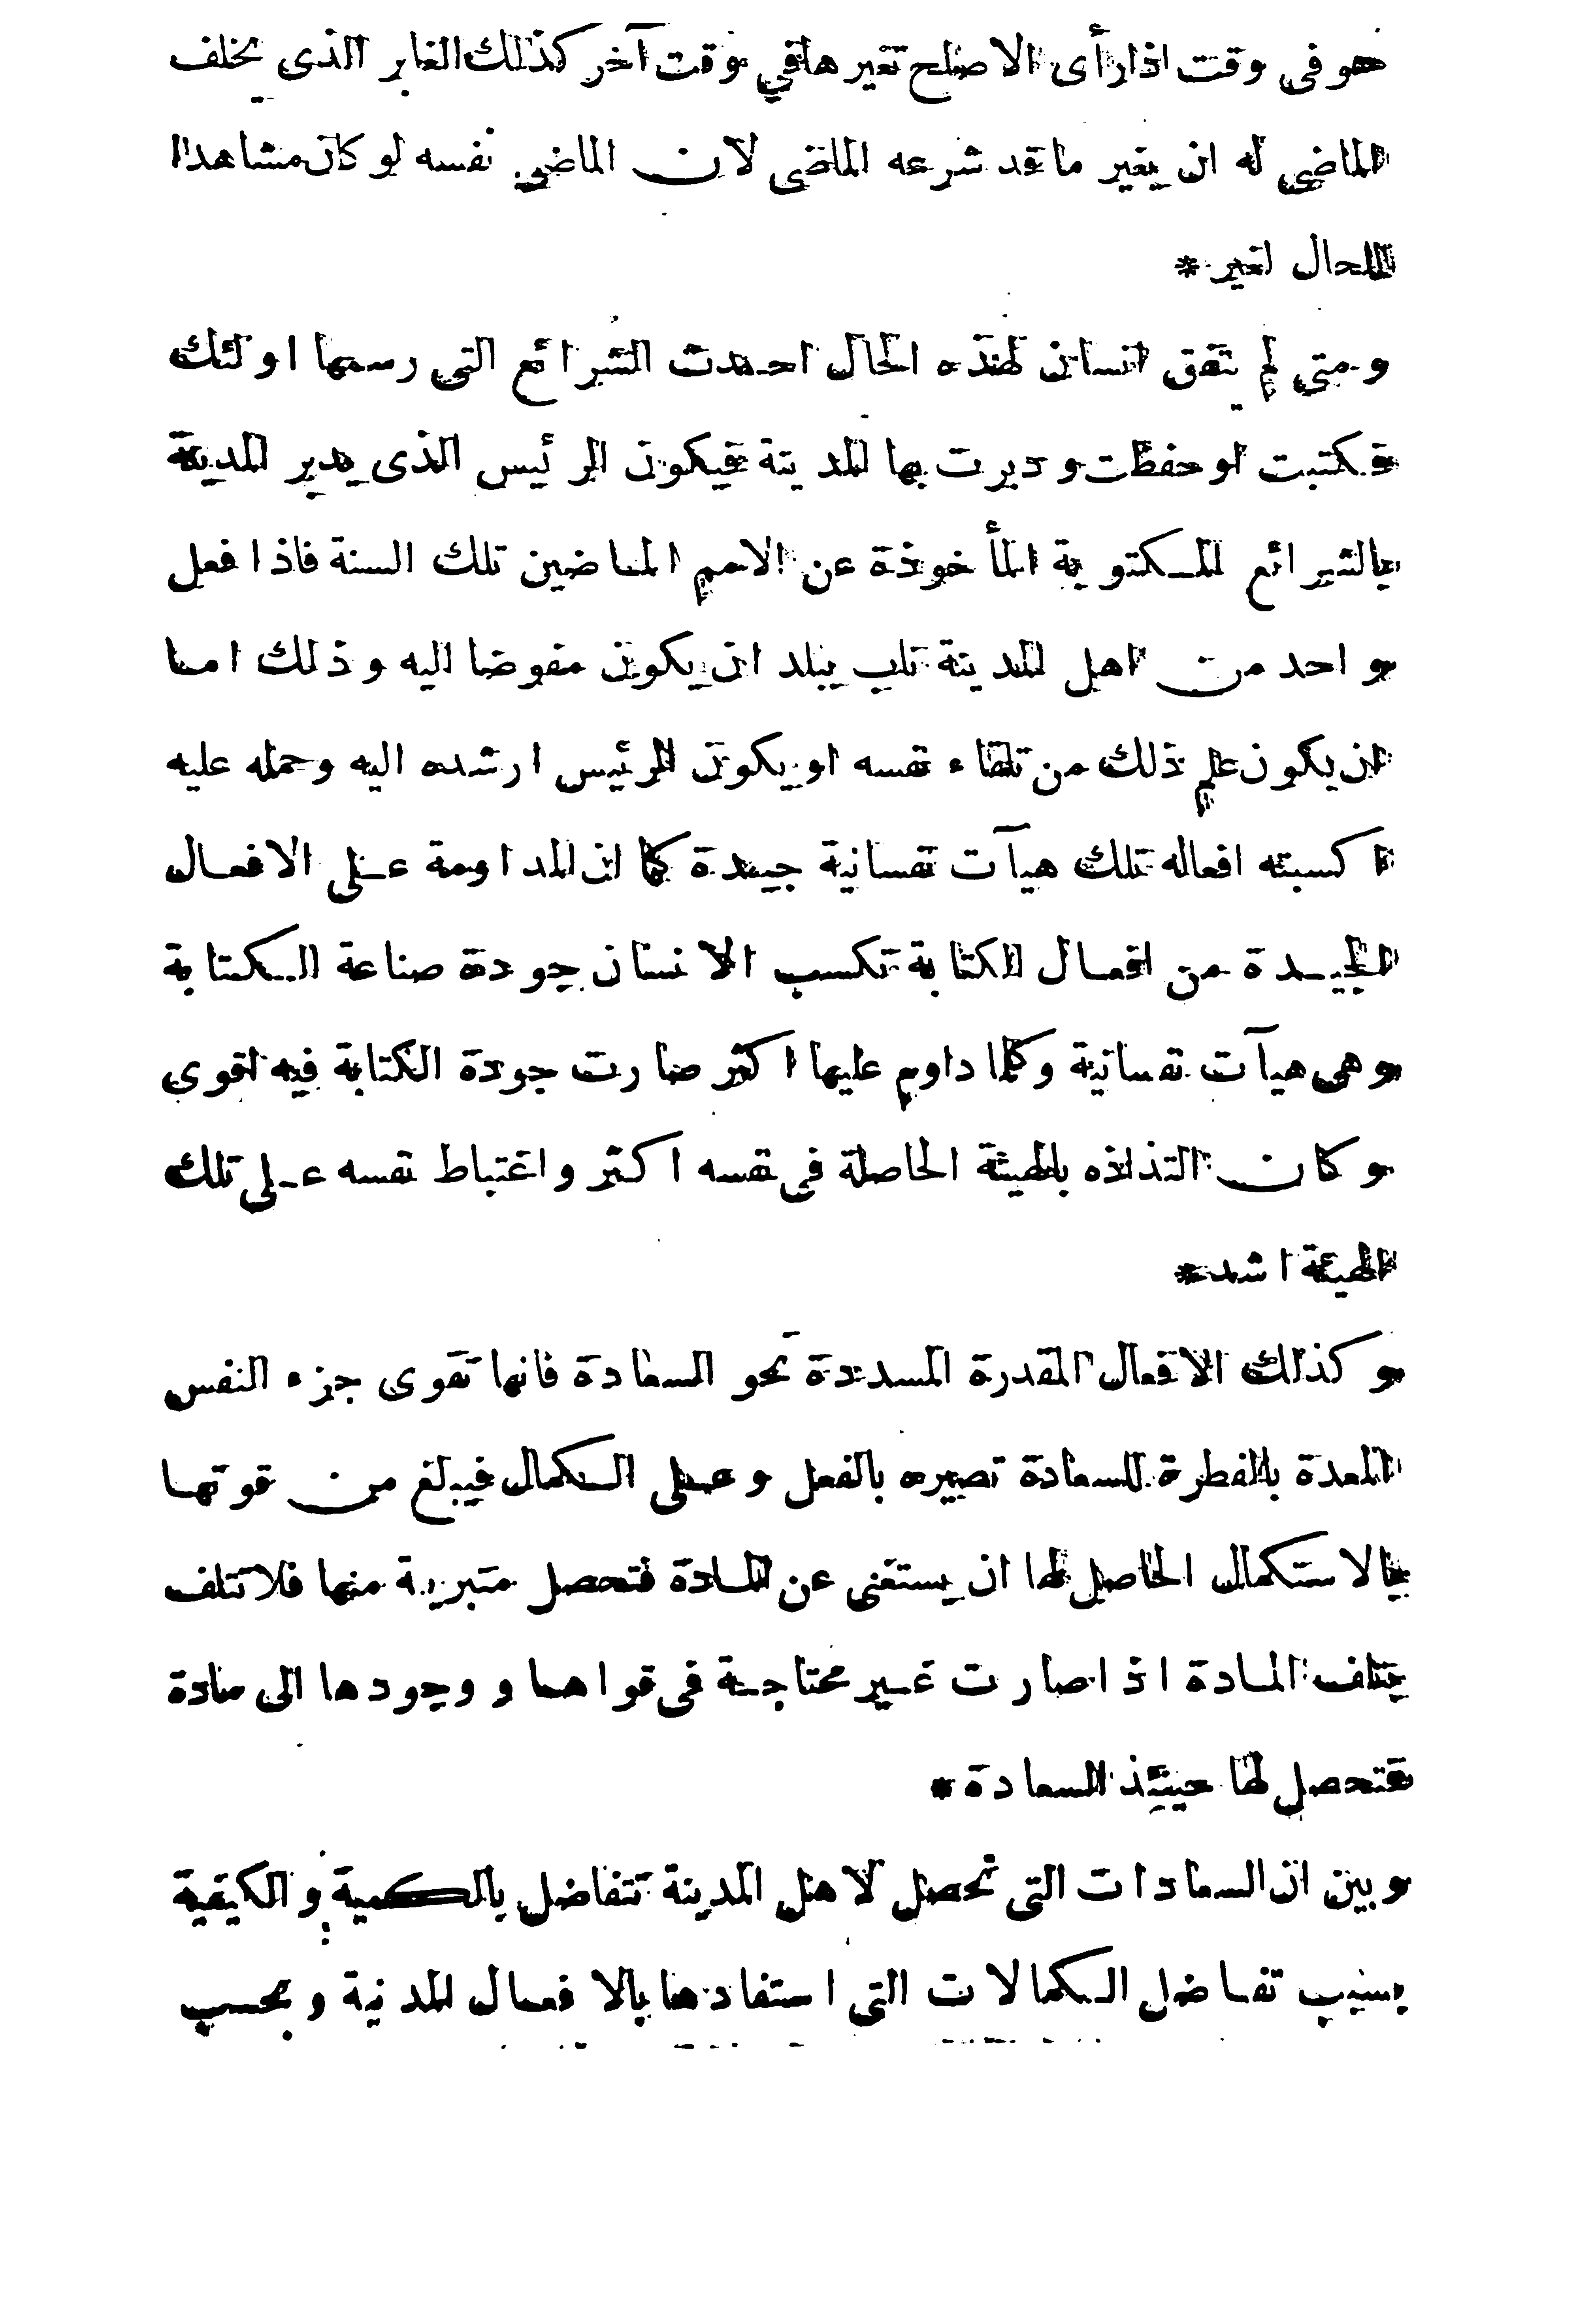 هو فى وقت اذا رأى الاصلح تغيرها في وقت آخر كذلك الغابر الذى يخلف
الماضى له ان يغير ما قد شرعه الماضى لان الماضى نفسه لو كان مشاهدا
للحال لغير *
ومتى لم يتفق انسان لهذه الحال احدث الشرائع التى رسمها اولئك
فكتبت او حفظت ودبرت بها المدينة فيكون الرئيس الذى يدبر المدينة
بالشرائع المكتوبة المأخوذة عن الامم الماضين تلك السنة فاذا فعل
واحد من اهل المدينة ان يكون مفوضا اليه وذلك اما
ان يكون علم ذلك من تلقاء نفسه او يكون الرئيس ارشده اليه وحمله عليه
اكسبته افعاله تلك هيآت نفسانية جيدة كما ان المداومة على الافعال
الجيدة من افعال الكتابة تكسب الانسان جودة صناعة الكتابة
وهى هيآت نفسانية وكلما داوم عليها اكثر صارت جودة الكتابة فيه اقوى
وكان التذاذه بالهيئة الحاصلة فى نفسه اكثر واغتباط نفسه على تلك
الهيئة اشد *
وكذلك الافعال المقدرة المسددة نحو السعادة فانها تقوى جزء النفس
المعدة بالفطرة للسعادة تصيره بالفعل وعلى الكمال فيبلغ من قوتها
بالاستكمال الحاصل لها ان يستغنى عن المادة فتحصل متبرية منها فلا تتلف
بتلف المادة اذا صارت غير محتاجة فى قواها ووجودها الى مادة
فتحصل لها حينئذ السعادة *
وبين ان السعادات التى تحصل لاهل المدينة تتفاضل بالكمية والكيفية
بسبب تفاضل الكمالات التى استفادها بالافعال المدنية وبحسب